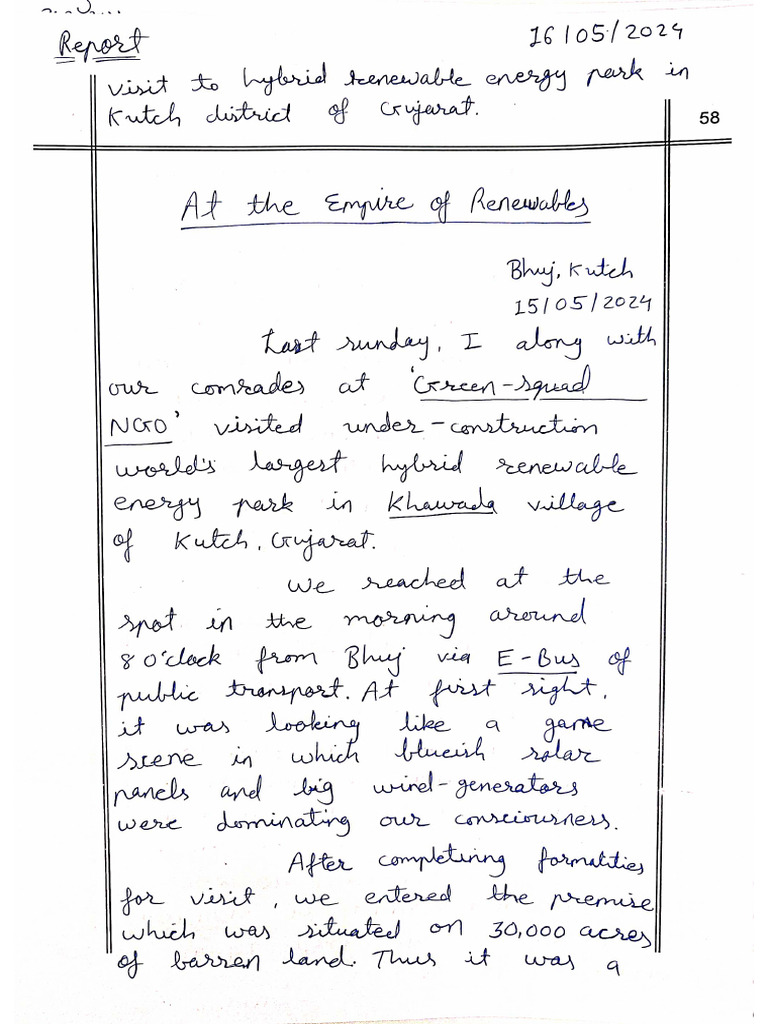 Report
16/05/2024
visit to hybrid renewable energy park in
Kutch district of Gujarat.
58
At the Empire of Renewables
Bhuj, Kutch
15/05/2024
Last sunday, I along with
our comrades at 'Green-squad
NGO' visited under-construction
world's largest hybrid renewable
energy park in Khawada village
of Kutch, Gujarat.
We reached at the
spot in the morning around
8 O'clock from Bhuj via E-Bus of
public transport. At first sight,
it was looking like a game
scene in which blueish solar
panels and big wind-generators
were dominating our consciousness.
After completinng formalities
for visit, we entered the premise
which was situated on 30,000 acres
of barren land. Thus it was a